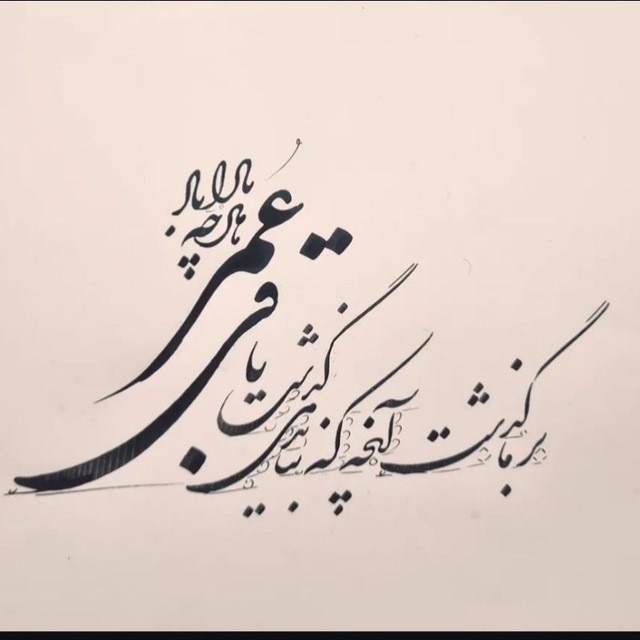 بر ما گذشت آنچه که نباید گذشت
باقی عمر
هرچه
بادا باد